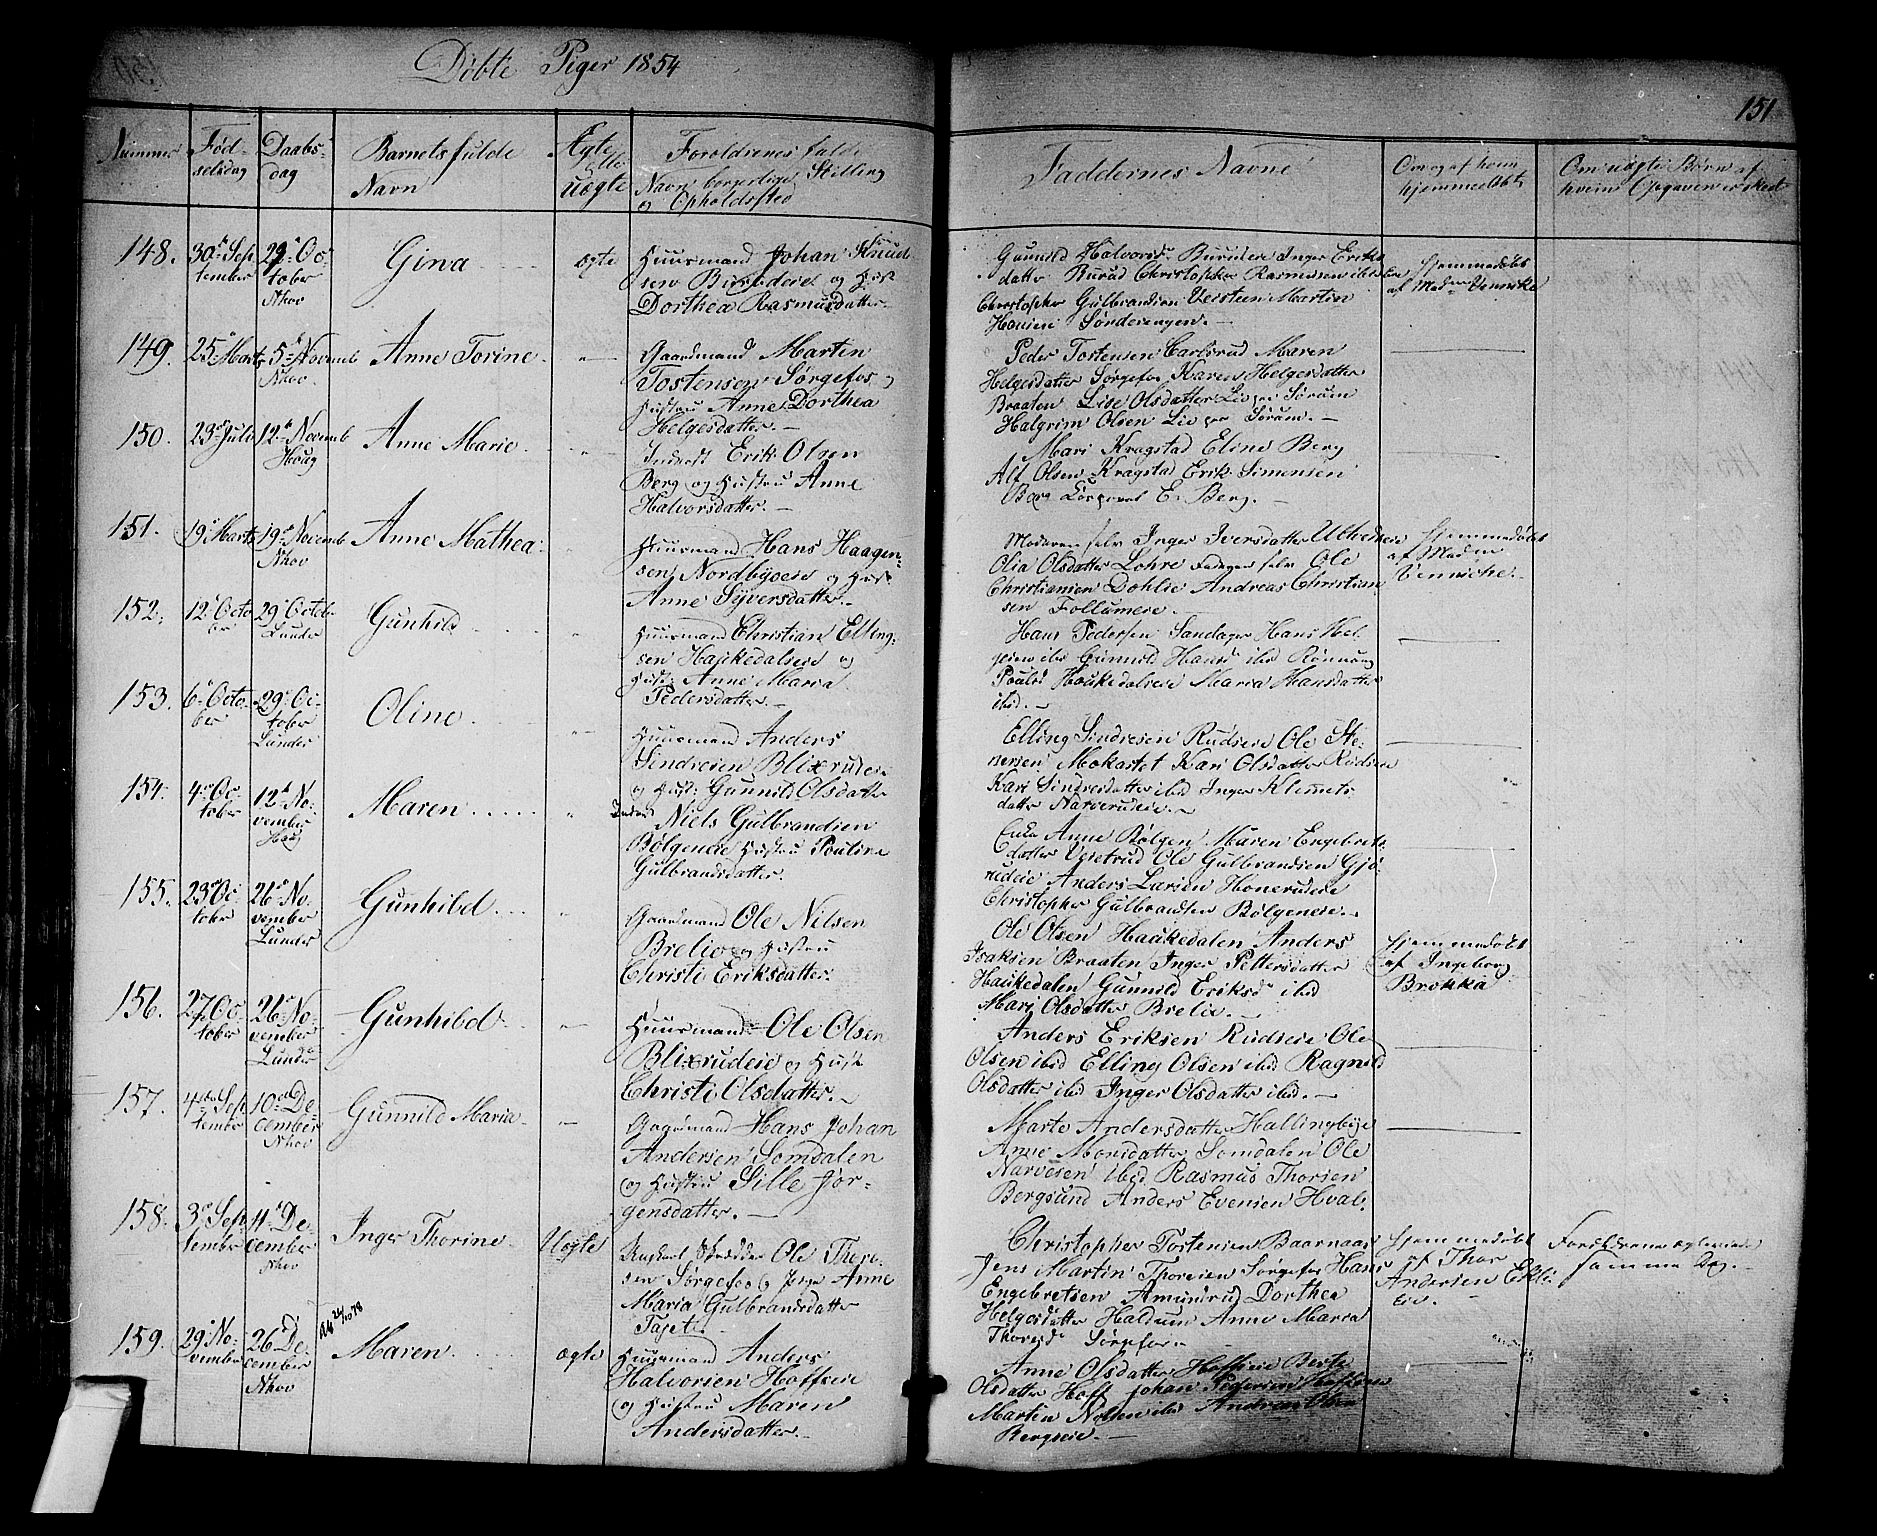 Döbte Piger 1854
151
Nummer
Föd-
selsdag
Daabs-
dag
Barnets fulde
Navn
Ægte
elle
uægte
Foreldrenes fulde
Navn borgerlige Stilling
og Opholdssted
Faddernes Navne
Om og af hvem
hjemmedöbt
Om uægte Börn af
hvem Opgaven er skeet
148.
30 Sep
tember
29 Oc
tober
Nhov
Gina
ægte
Huusmand Johan Knud
sen Burudeie og Hust
Dorthea Rasmusdatter.
Gunild Halvorsd. Burudeie Inger Eriks
datter Burud Christopher Rasmussen ibid
Christopher Gulbrandsen Versteen Martin
Hansen Sönderengen. —
Hjemmedöbt
af Mad Vennike
149.
25 Marts
5 Novemb
Nhov.
Anne Torine
Gaardmand Martin
Tostensen Sörgefos og
Hustru Anne Dorthea
Helgesdatter. —
Peder Tostensen Carlsrud Maren
Helgesdatter Sörgefos Karen Helgesdatter
Braaten Lise Olsdatter Sörum
Halgrim Olsen Sörum. —
150.
23 Juli
12 Novemb
Houg
Anne Marie
Inderst Erik Olsen
Berg og Hustru Anne
Halvorsdatter. —
Mari Kragstad Eline Berg
Alf Olsen Kragstad Erik Simensen
Berg E. Berg. —
151.
19 Marts
19 Novemb
Nhov
Anne Mathea
Huusmand Hans Haagen-
sen Nordbyeie og Hust.
Anne Syversdatter. —
Moderen selv Inger Iversdatter
Olia Olsdatter Lohre Faderen selv Ole
Christiansen Dohlie Andreas Christian
sen Follumeie. —
Hjemmedöbt
af Madm
Venniche. —
152.
12 Octo
ber
29 Octob
Lunder
Gunhild
Huusmand Christian Elling-
sen Haukedalseie og
Hust: Anne Maria
Pedersdatter. —
Hans Pedersen Sandager Hans Hel
geien ibid Gunnild Hansd ibid Rönnaug
Poulsd Haukedalseie Maria Hansdatter
ibid. —
153.
6 Octo-
ber
29 Oc-
tober
Lunder
Oline
Huusmand Anders
Sindresen Blixrudeie
og Hust: Gunnild Olsdatter
Elling Sindresen Rudseie Ole Ste-
nersen Mokastet Kari Olsdatter Rudsen
Kari Sindresdatter ibid Inger Klemets
datter Narverudeie. —
154.
4 Oc-
tober
12 No-
vember
Houg
Maren
Inderst
Niels Gulbrandsen
Bölgen og Hustru Pouline
Gulbrandsdatter.
Enke Anne Bölgen Maren Engebrets
datter Vesetrud Ole Gulbrandsen Gjö-
rudeie Anders Larsen Honerudeie
Christopher Gulbrandsen Bölgeneie. —
155.
23 Oc
tober
26 No-
vember
Lunder
Gunhild
Gaardmand Ole Nilsen
Brelie og Hustru
Christi Eriksdatter.
Ole Olsen Haukedalen Anders
Isaksen Braaten Inger Pettersdatter
Haukedalen Gunnild Eriksd ibid
Mari Olsdatter Brelie. —
Hjemmedöbt
af Ingeborg
Brokka
156.
27 Oc
tober
26 No-
vember
Lunder
Gunhild
Huusmand Ole Olsen
Blixrudeie og Hust
Christi Olsdatter. —
Anders Eriksen Rudseie Ole
Olsen ibid Elling Olsen ibid Ragnild
Olsdatter ibid Inger Olsdatter ibid. —
157.
4 Sep
tember
10 De-
cember
Nhov
Gunnild Maria
Gaardmand Hans Johan
Andersen Somdalen
og Hustru Sille Jör-
gensdatter. —
Marte Andersdatter Hallingbye
Anne Monsdatter Somdalen Ole
Narvesen ibid Rasmus Thorsen
Bergsund Anders Evensen Hval.
158.
3 Sep
tember
4 De-
cember
Nhov
Inger Thorine
Uægte
Ungkarl Skrædder Ole Thore-
sen Sörgefos og Pige Anne
Maria Gulbrandsdatter
Tajet.
Christopher Tostensen Baarnaas
Jens Martin Thoresen Sörgefos Hans
Engebretsen Amundrud Dorthea
Helgesdatter Haldum Anne Maria
Thoresd Sörgefos —
Hjemmedöbt
af Thor
Andersen
eie. —
Foreldrene ægteviede
samme Dag. —
159.
29 No-
vember
26 De-
cember
Nhov
24/10 78
Maren
ægte
Huusmand Anders
Halvorsen Hoffseie
og Hustru Maren
Andersdatter. —
Anne Olsdatter Hoffseie Berte
Olsdatter Hoff Johan Pedersen Hoffseie
Martin Nilsen ibid Andreas Olsen
Bergseie. —